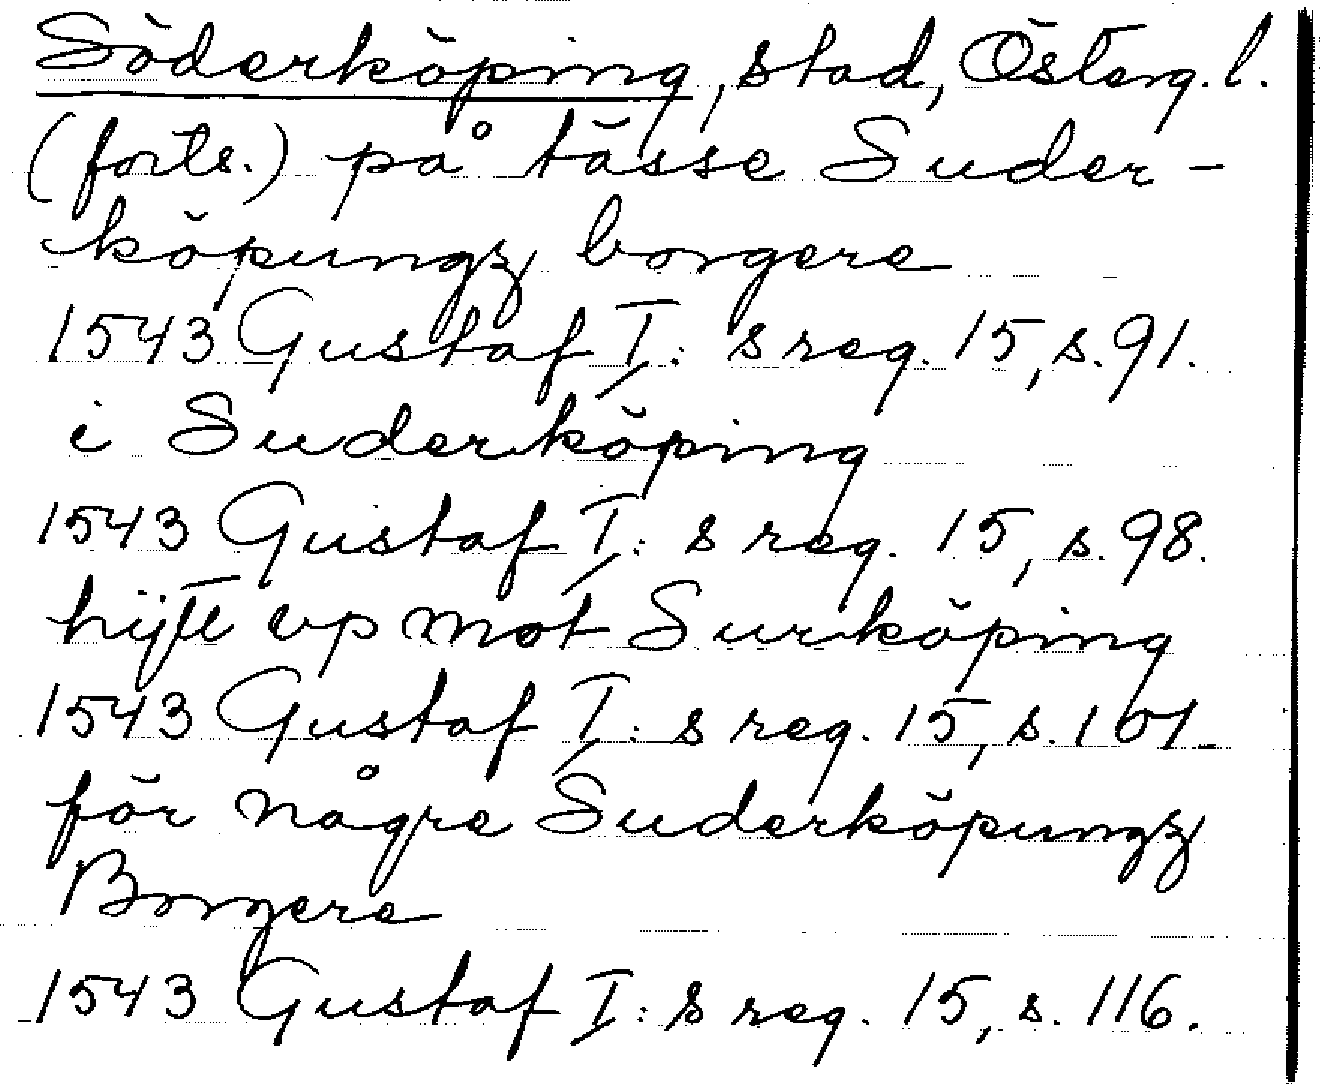 Söderköping, stad, Österg. l.
(forts.) på tässe Suder-
köpungz borgere
1543 Gustaf I:s reg. 15, s. 91.
i Suderköping
1543 Gustaf I:s reg. 15, s. 98.
hijtt vp mot Surköping
1543 Gustaf I:s reg. 15, s. 101.
för någre Suderköpungz
Borgere
1543 Gustaf I:s reg. 15, s. 116.